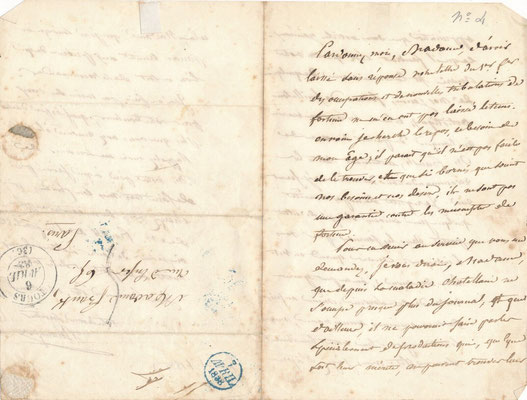 N° 4
Pardonnez moi, Madame, d'avoir
laissé sans réponse votre lettre du 1er
Des occupations et de nouvelles tribulations de
fortune ne m'en ont pas laissé le tems.
en vain je cherche le repos, ce besoin de
mon âge; il parait qu'il n'est pas facile
de le trouver, et que si bornés que soient
nos besoins et nos desirs, ils ne sont pas
une garantie contre les mécomptes de
fortune.
Pour en venir au service que vous me
demandez, je vous dirai, Madame,
que depuis sa maladie Chatelain ne
s'occupe presque plus du journal, et que
d'ailleurs il ne pourrait faire parler
spécialement de productions qui, quel que
soit leur mérite, ne peuvent trouver leur
Madame
rue d'Enfer
Paris.
TOURS
6
AVRIL
1838
(36)
7
AVRIL
1838